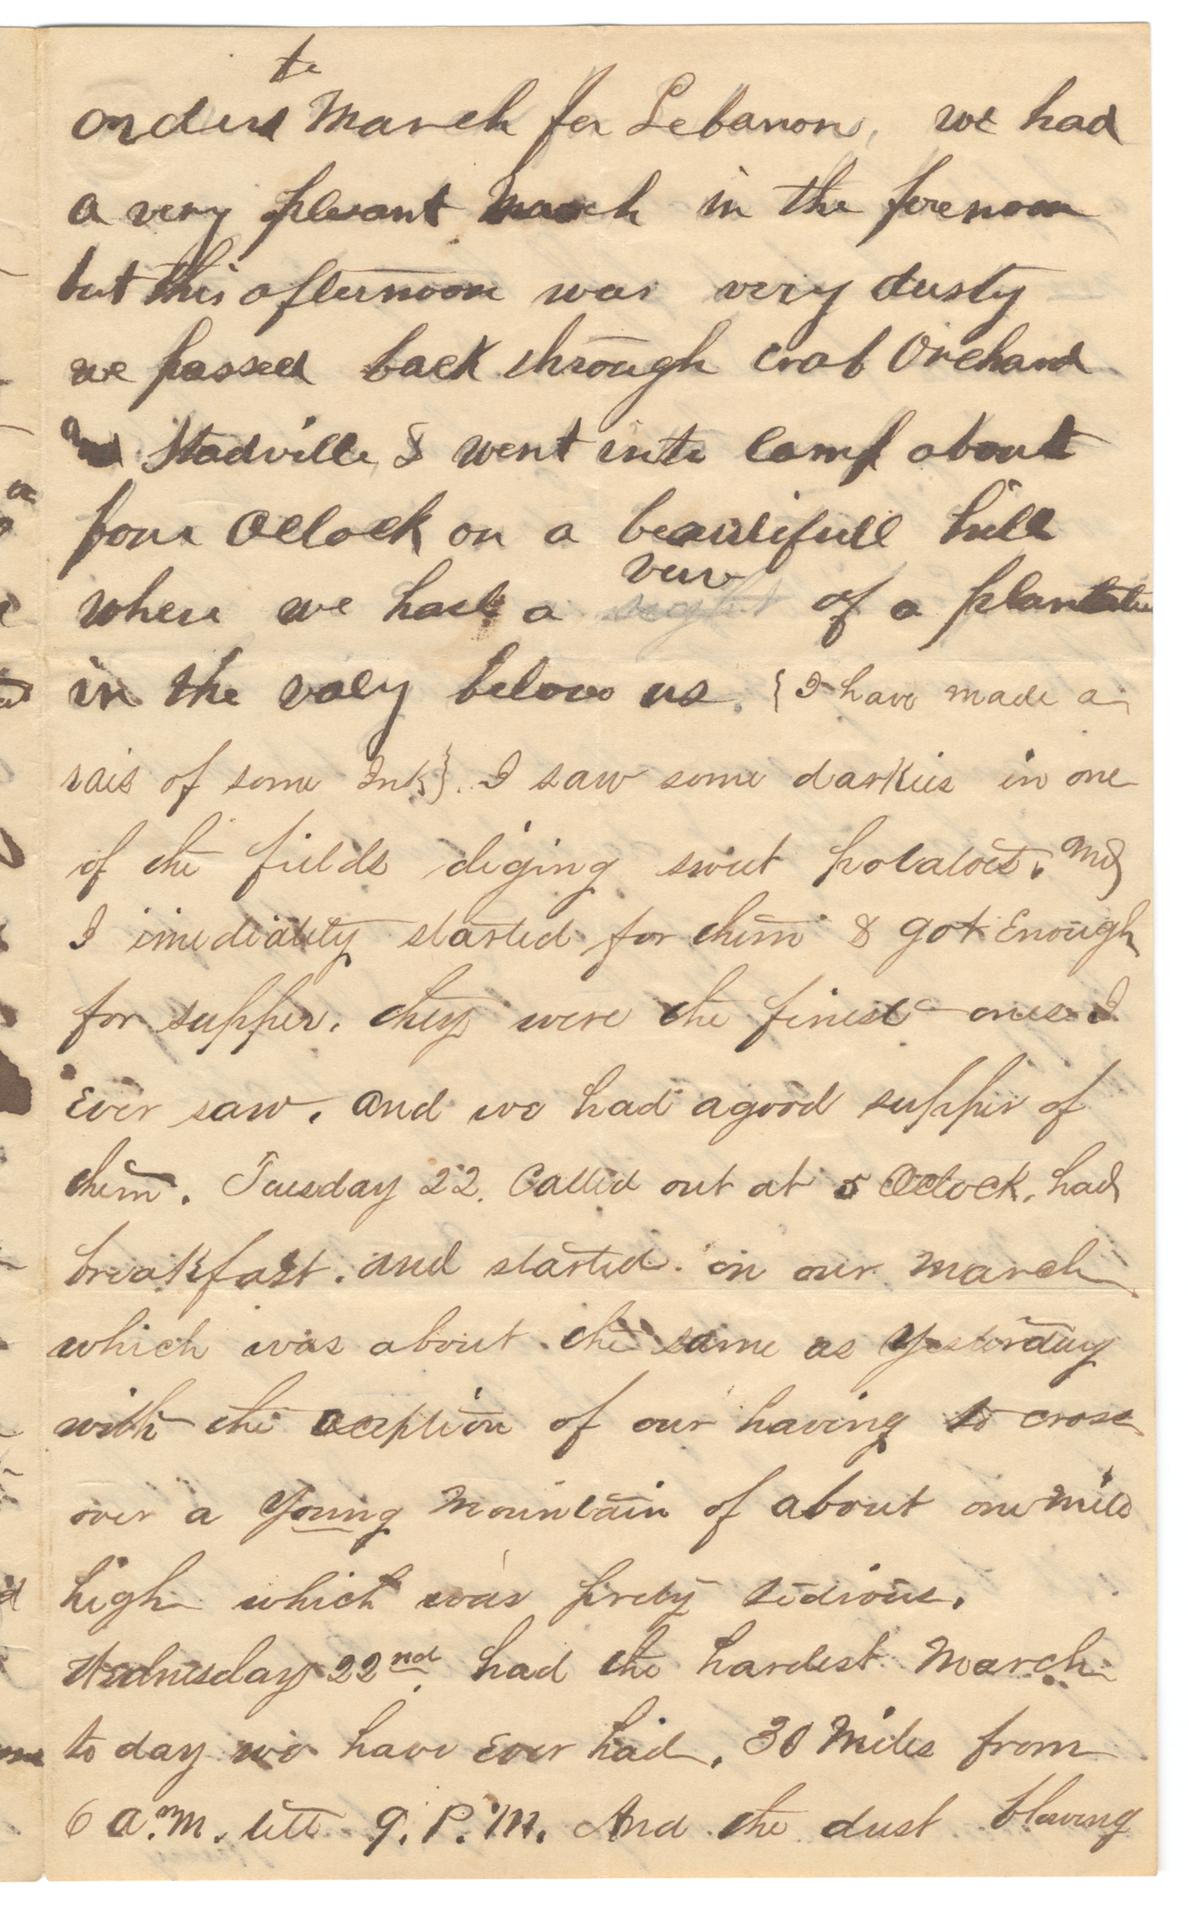 to
orders March for Lebanon, we had
a very plesant March in the forenoon
but this afternoon was very dusty
we passed back through Crab Orchard
and Stadville, & went into Camp about
four Oclock on a beautifull hill
view
where we had a sight of a plantation
in the valy below us. {I have made a
rais of some Ink}. I saw some darkies in one
of the fields diging sweet potatoes. And
I imediatity started for them & got Enough
for supper. they were the finest ones I
Ever saw. and we had a good supper of
them. Tuesday 22. Called out at 5 Oclock, had
breakfast. and started on our March
which was about the same as Yesterday
with the aception of our having to cross
over a Young Mountain of about one Mile
high which was prety tedious.
Wednesday 22nd had the hardest March
to day we have Ever had. 30 Miles from
6 A.M. till 9. P. M. And the dust blowing